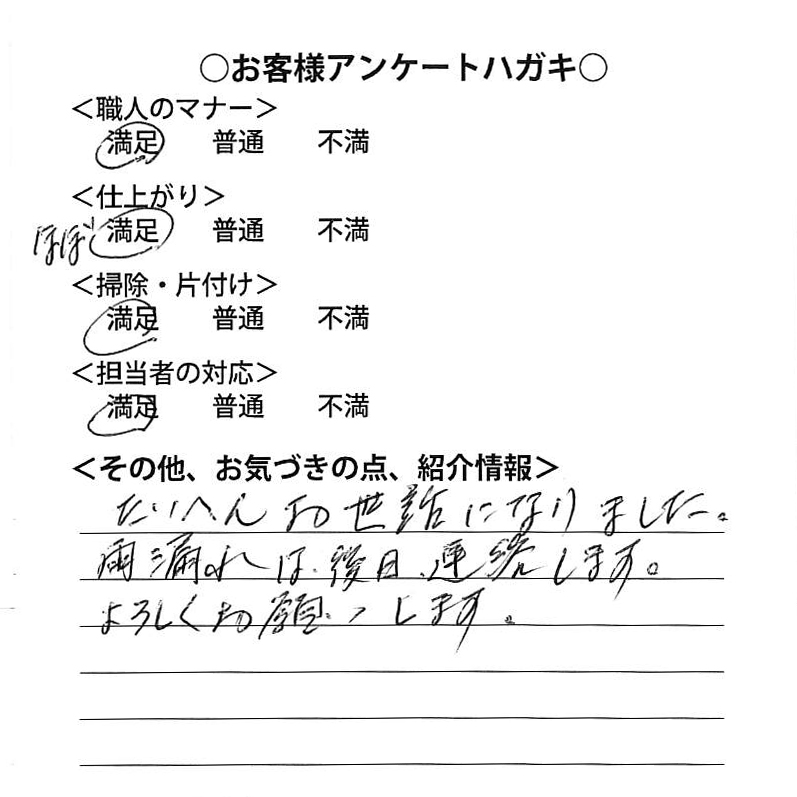 ○お客様アンケートハガキ○
＜職人のマナー＞
満足 普通 不満
＜仕上がり＞
ほぼ 満足 普通 不満
＜掃除・片付け＞
満足 普通 不満
＜担当者の対応＞
満足 普通 不満
＜その他、お気づきの点、紹介情報＞
たいへんお世話になりました。
雨漏れは、後日、連絡します。
よろしくお願いします。